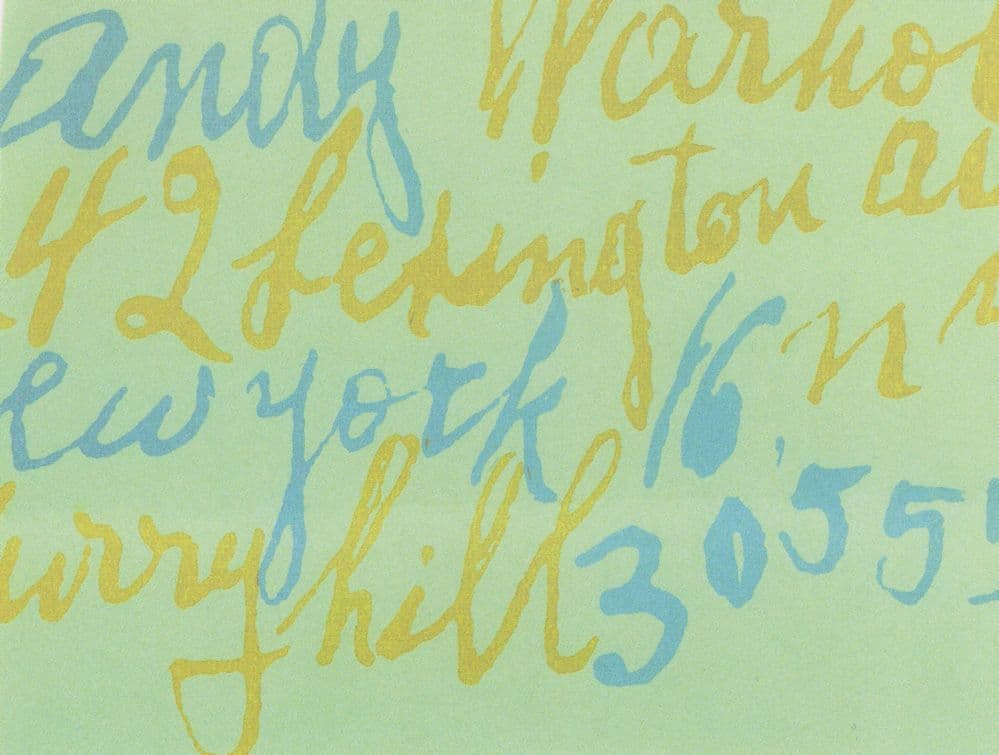 andy Warhol
42 Lexington av
ew york 16 n y
urry hill 3 0555